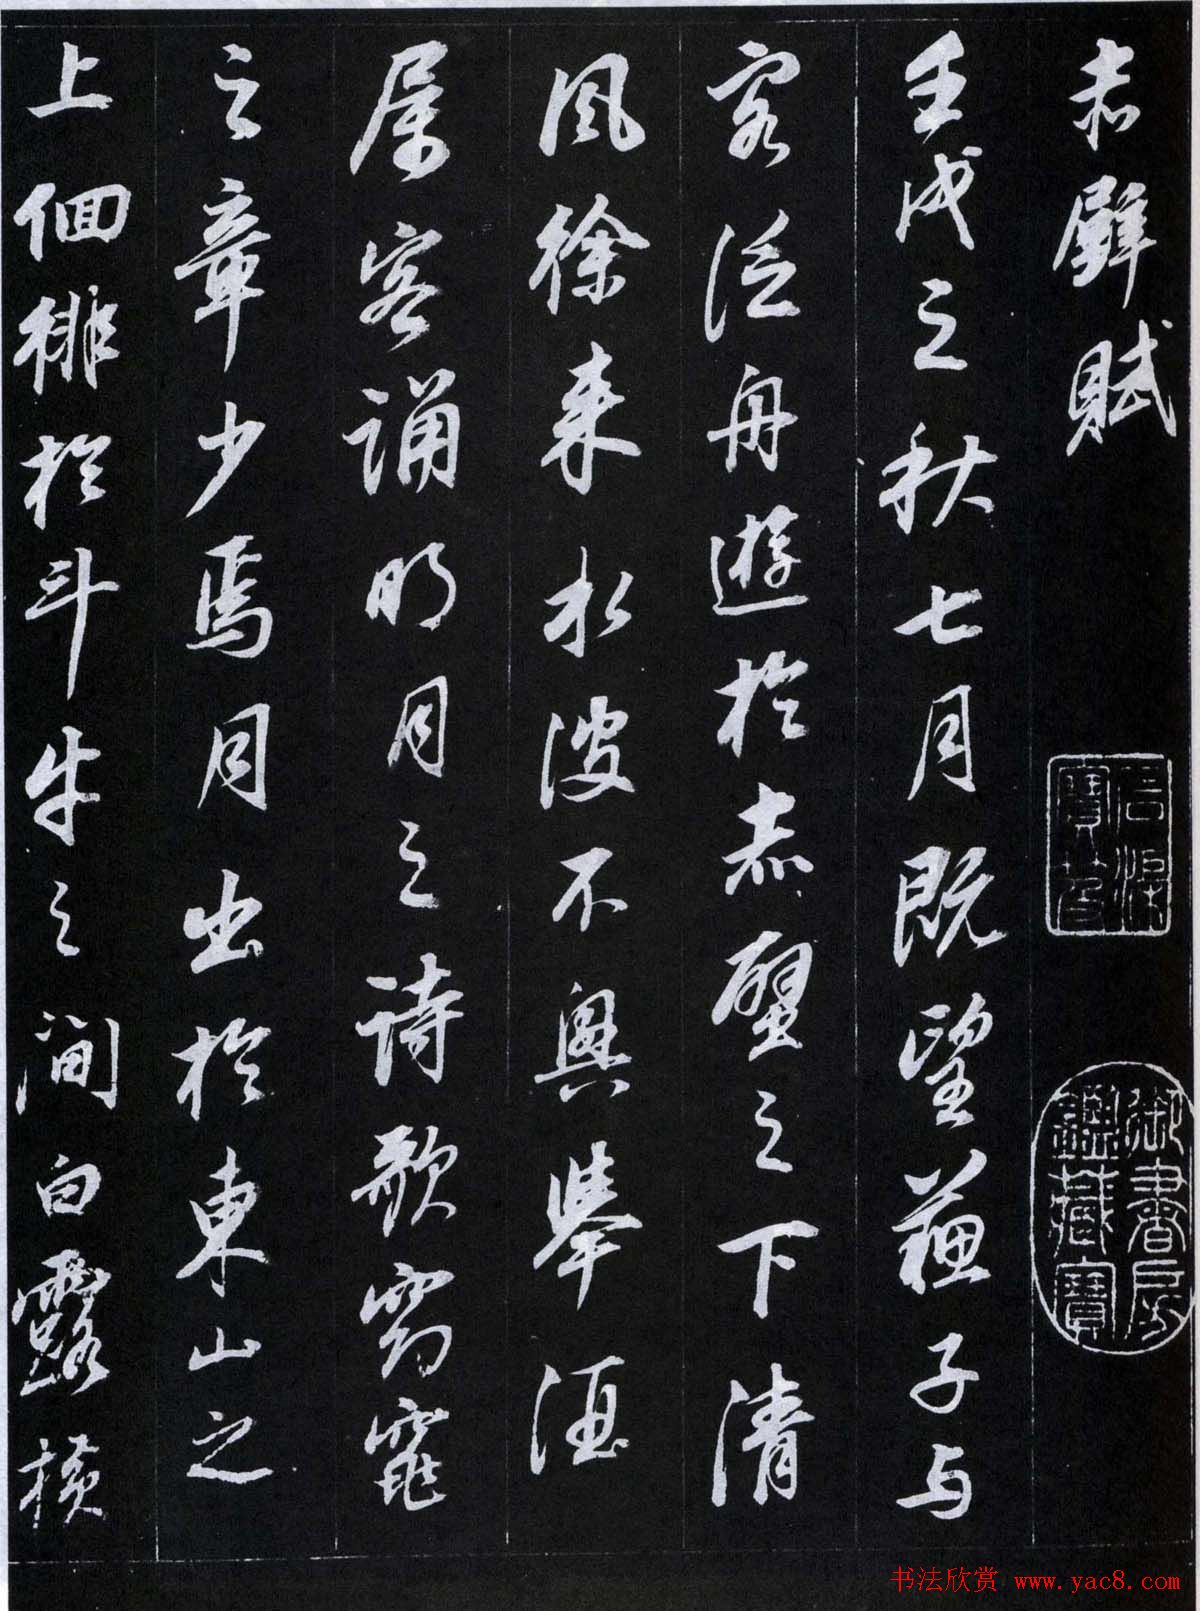 赤壁賦
石渠寶笈
御書房鑑藏寶
壬戌之秋七月既望蘇子与
客泛舟遊於赤壁之下清
風徐来水波不興舉酒
属客誦明月之詩歌窈窕
之章少焉月出於東山之
上佪徘於斗牛之間白露横
书法欣赏 www.yac8.com